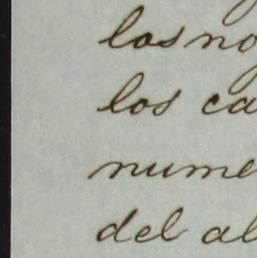 los no
los ca
nume
del al